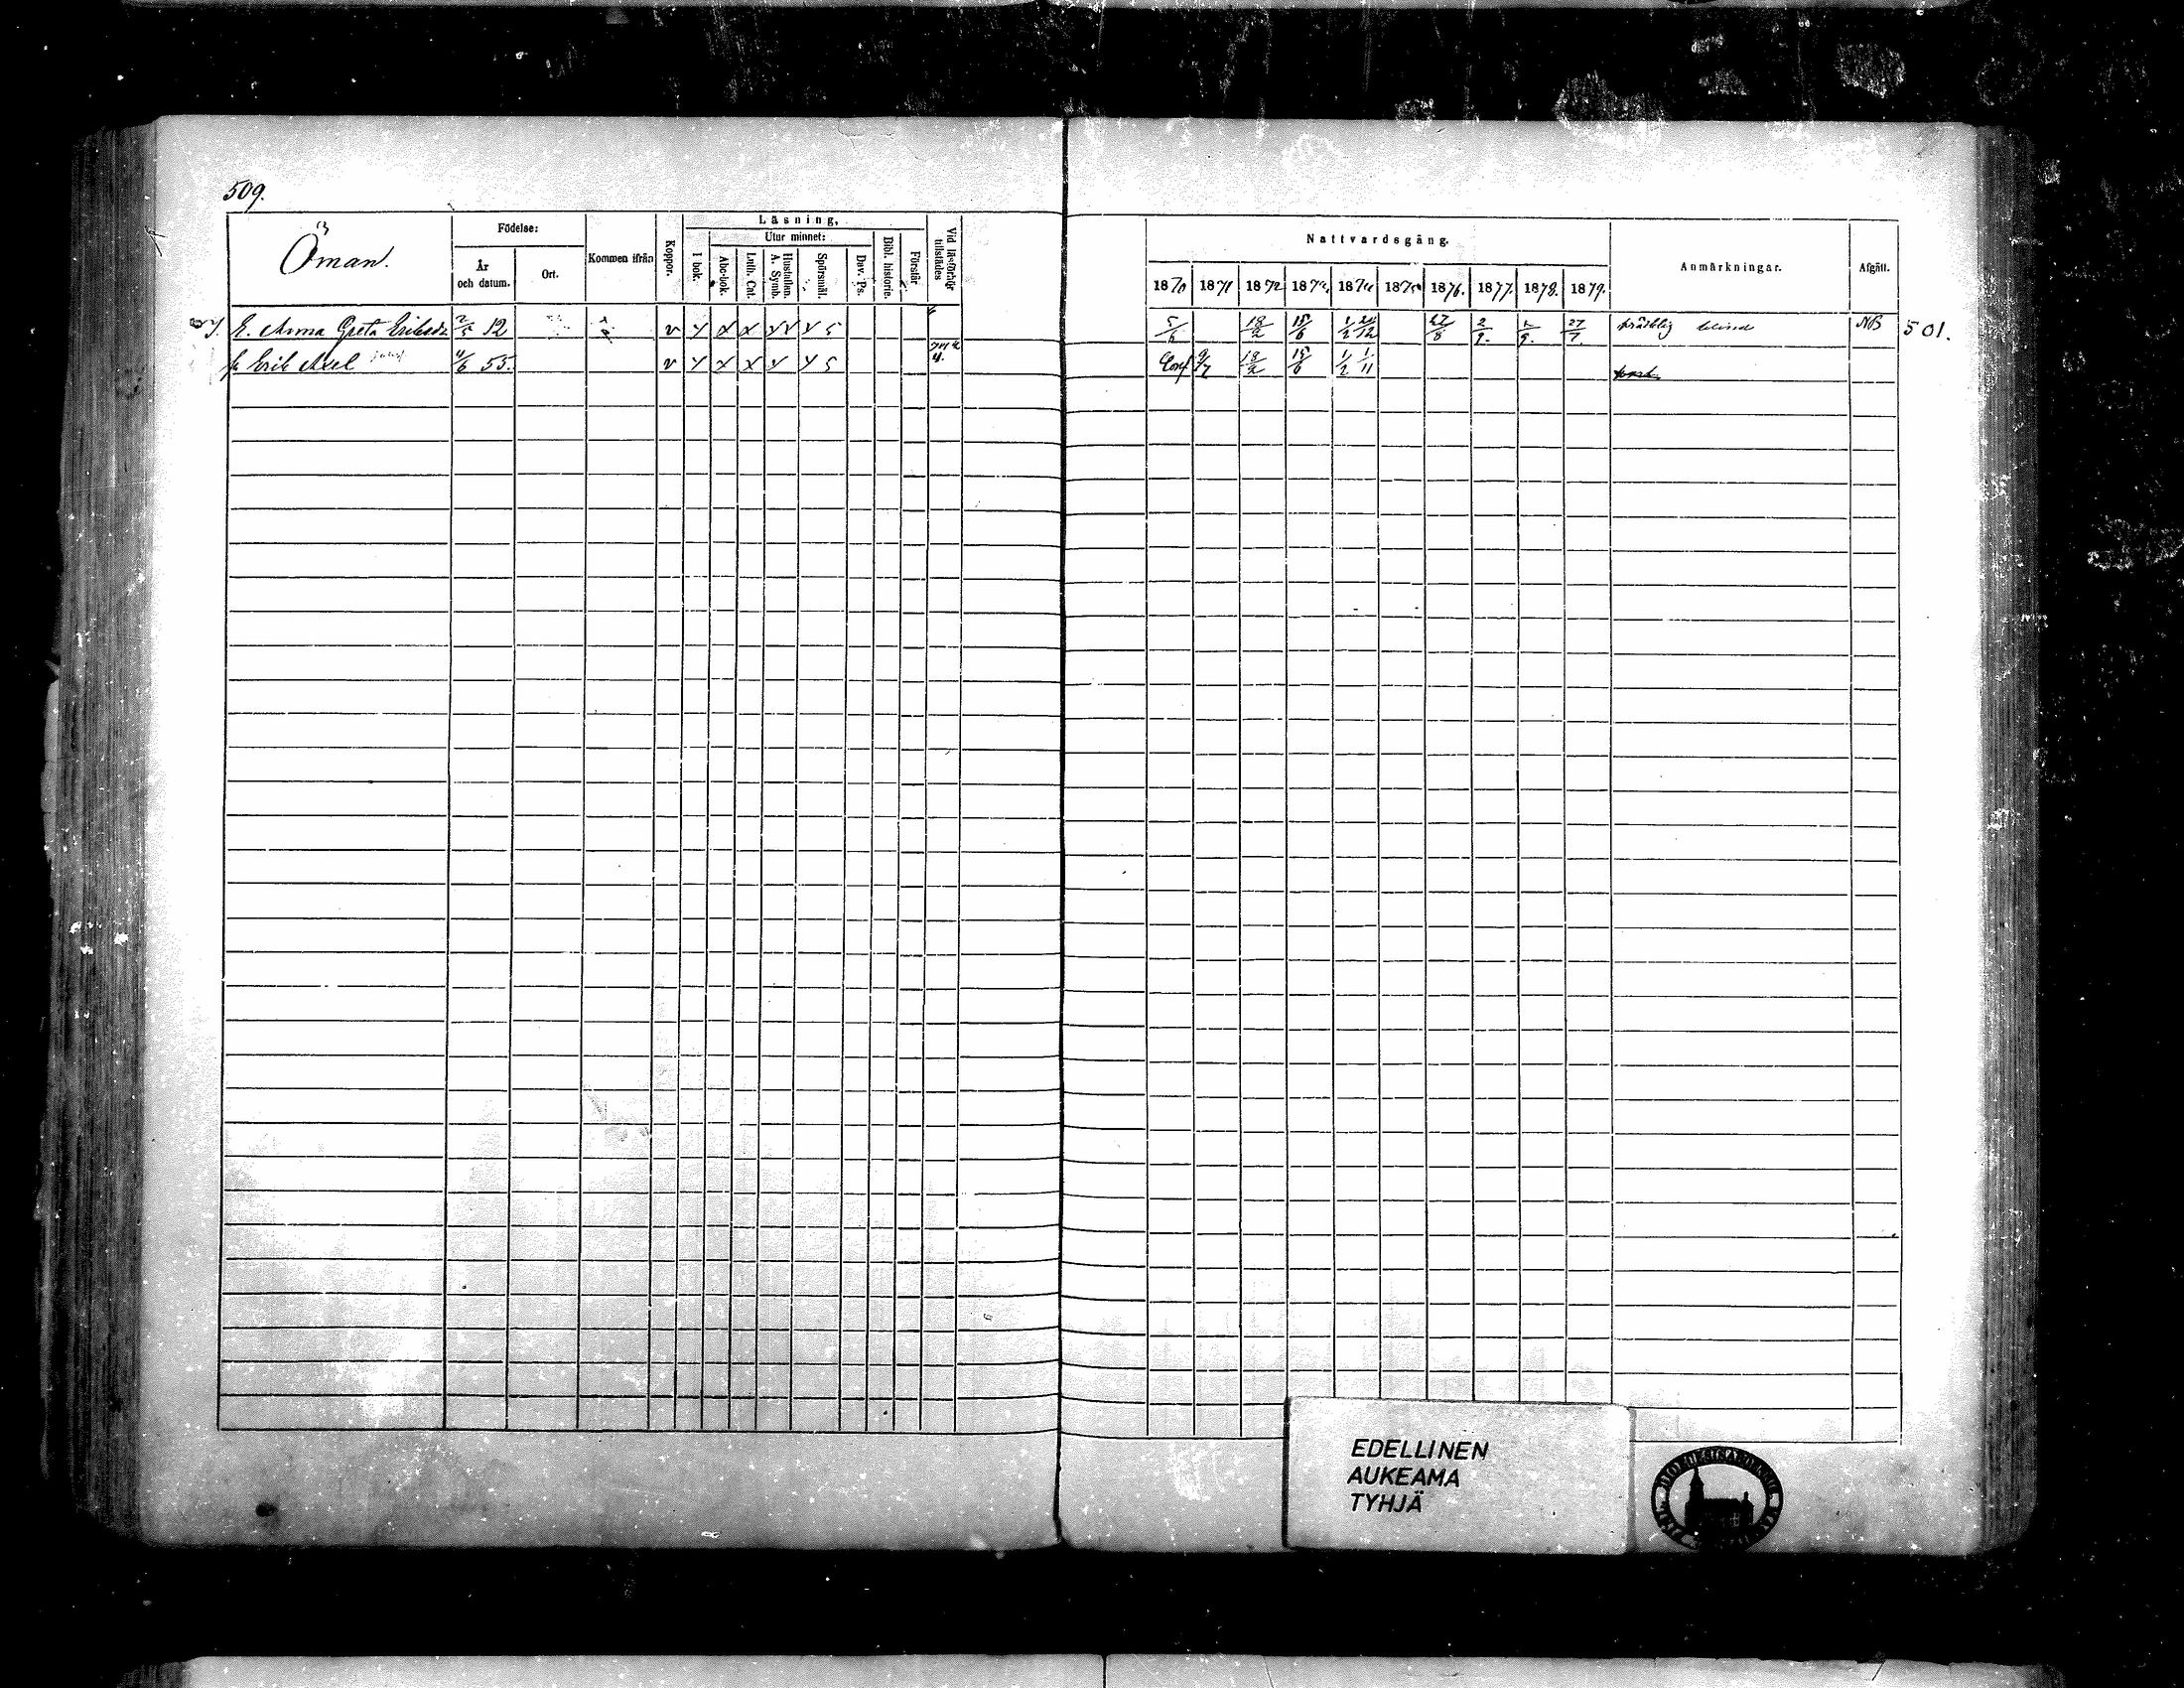 509.
Öman.
Födelse:
År och datum.
Ort.
Kommen ifrån
Koppor.
Läsning,
I bok.
Utur minnet:
Abc-bok.
Luth. Cat.
Hustaflan. A. Symb.
Spörsmål.
Dav. Ps.
Bibl. historie.
Förstår
Vid läsförhör tillstädes
Nattvardsgång.
1870 1871 1872 1873. 1874 1875 1876. 1877. 1878. 1879.
Anmärkningar.
Afgått.
E. Anna Greta Eriksdr 2/5 12 v 5/6 18/2 15/6 1/2 27/8 2/9. 27/7. blind NB 501.
Erik Axel 4/6 55. v Conf. 9/7 18/2 15/6 1/2 1/11
EDELLINEN
AUKEAMA
TYHJÄ